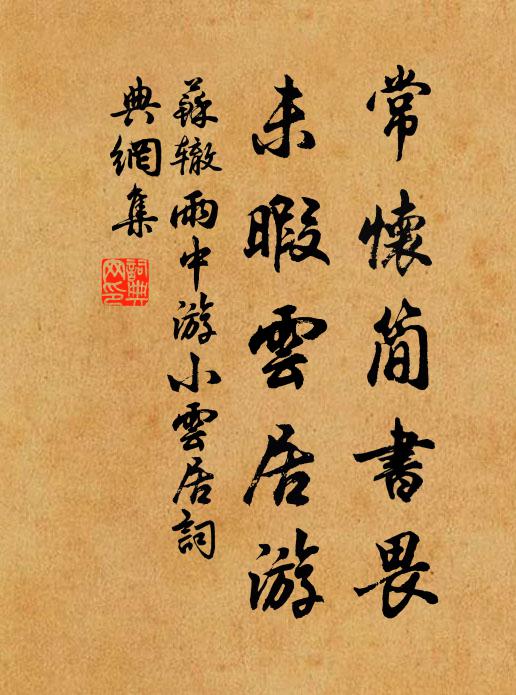 常懷简書畏
未暇雲居游
蘇辙雨中游小雲居詞
典網集
詞典
网印